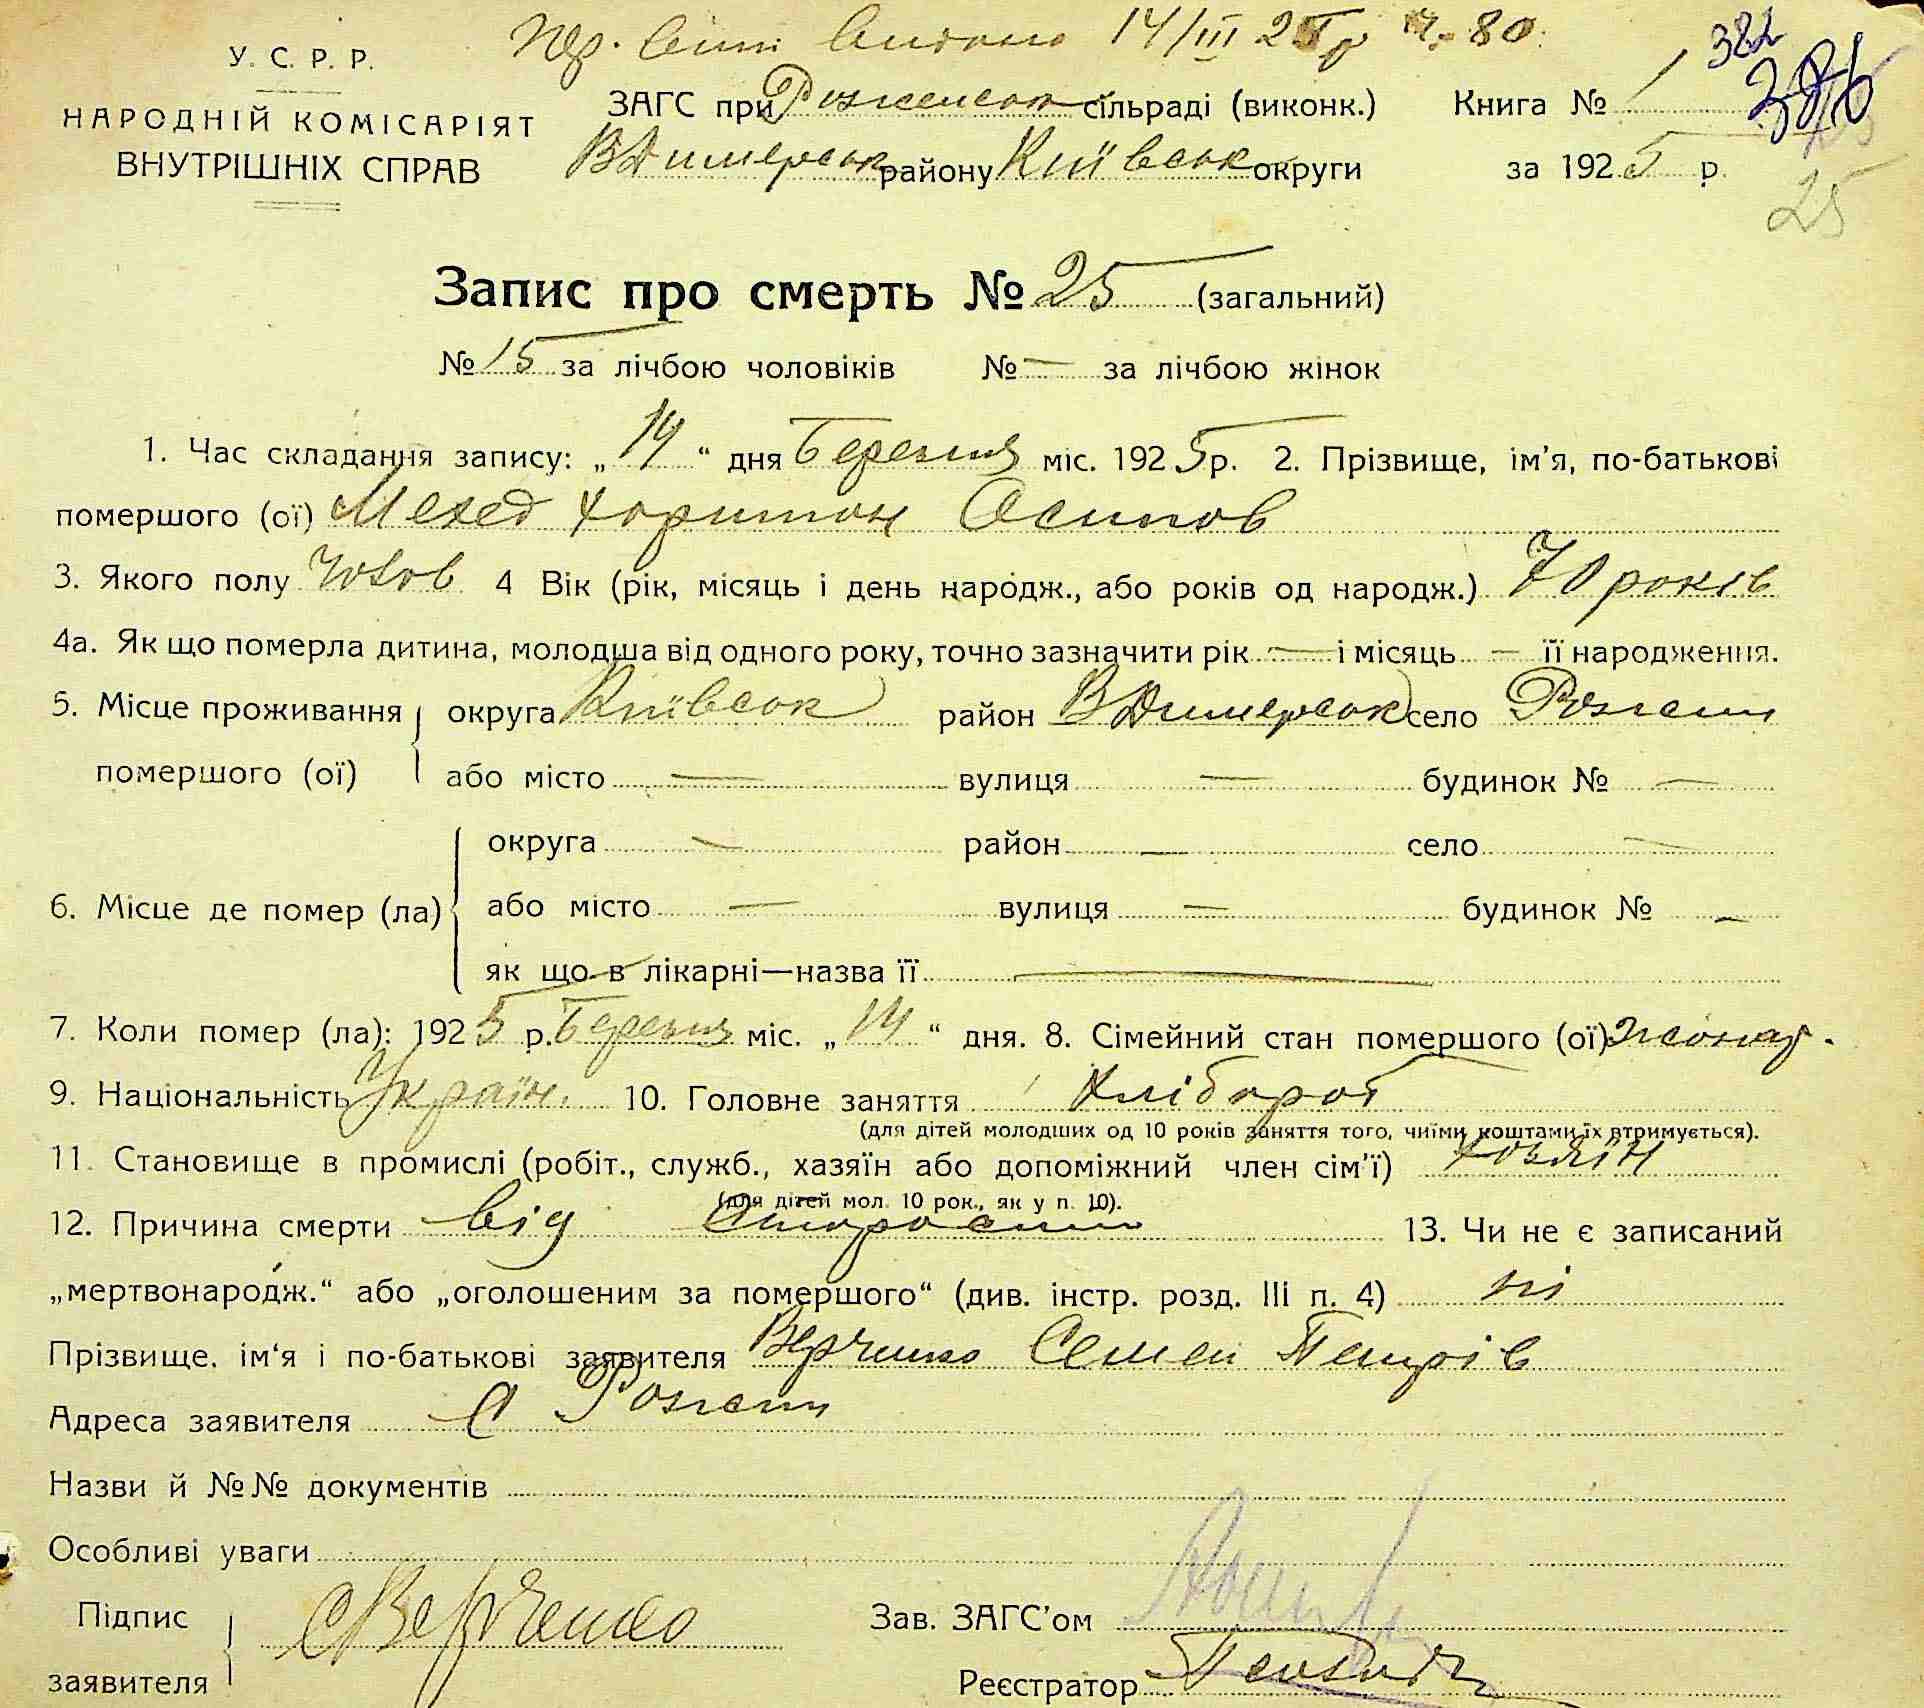 14/III 25 р № 80
382
386
У. С. Р. Р.
НАРОДНІЙ КОМІСАРІЯТ
ВНУТРІШНІХ СПРАВ
ЗАГС при сільраді (виконк.) Книга № 1
ВДимерськ району Київськ округи за 1925 р.
25
Запис про смерть № 25 (загальний)
№ 15 за лічбою чоловіків № — за лічбою жінок
1. Час складання запису: „14“ дня Березня міс. 1925 р. 2. Прізвище, ім'я, по-батькові
помершого (ої) Мехед Харитон Осипов
3. Якого полу чолов 4 Вік (рік, місяць і день народж., або років од народж.) 70 років
4а. Як що померла дитина, молодша від одного року, точно зазначити рік — і місяць — її народження.
5. Місце проживання округа Київськ район ВДимерськ село Розжни
помершого (ої) або місто — вулиця — будинок № —
округа — район — село —
6. Місце де помер (ла) або місто — вулиця — будинок № —
як що в лікарні—назва її —
7. Коли помер (ла): 1925 р. Березня міс. „14“ дня. 8. Сімейний стан помершого (ої) жонат.
9. Національність Україн. 10. Головне заняття Хлібороб
(для дітей молодших од 10 років заняття того, чиїми коштами їх втримується).
11. Становище в промислі (робіт., служб., хазяїн або допоміжний член сім'ї) хозяїн
(для дітей мол. 10 рок., як у п. 10).
12. Причина смерти від старости 13. Чи не є записаний
„мертвонародж.“ або „оголошеним за помершого“ (див. інстр. розд. III п. 4) ні
Прізвище, ім'я і по-батькові заявителя Верченко Семен Петрів
Адреса заявителя с Розжни
Назви й №№ документів
Особливі уваги
Підпис
заявителя СВерченко
Зав. ЗАГС'ом
Реєстратор